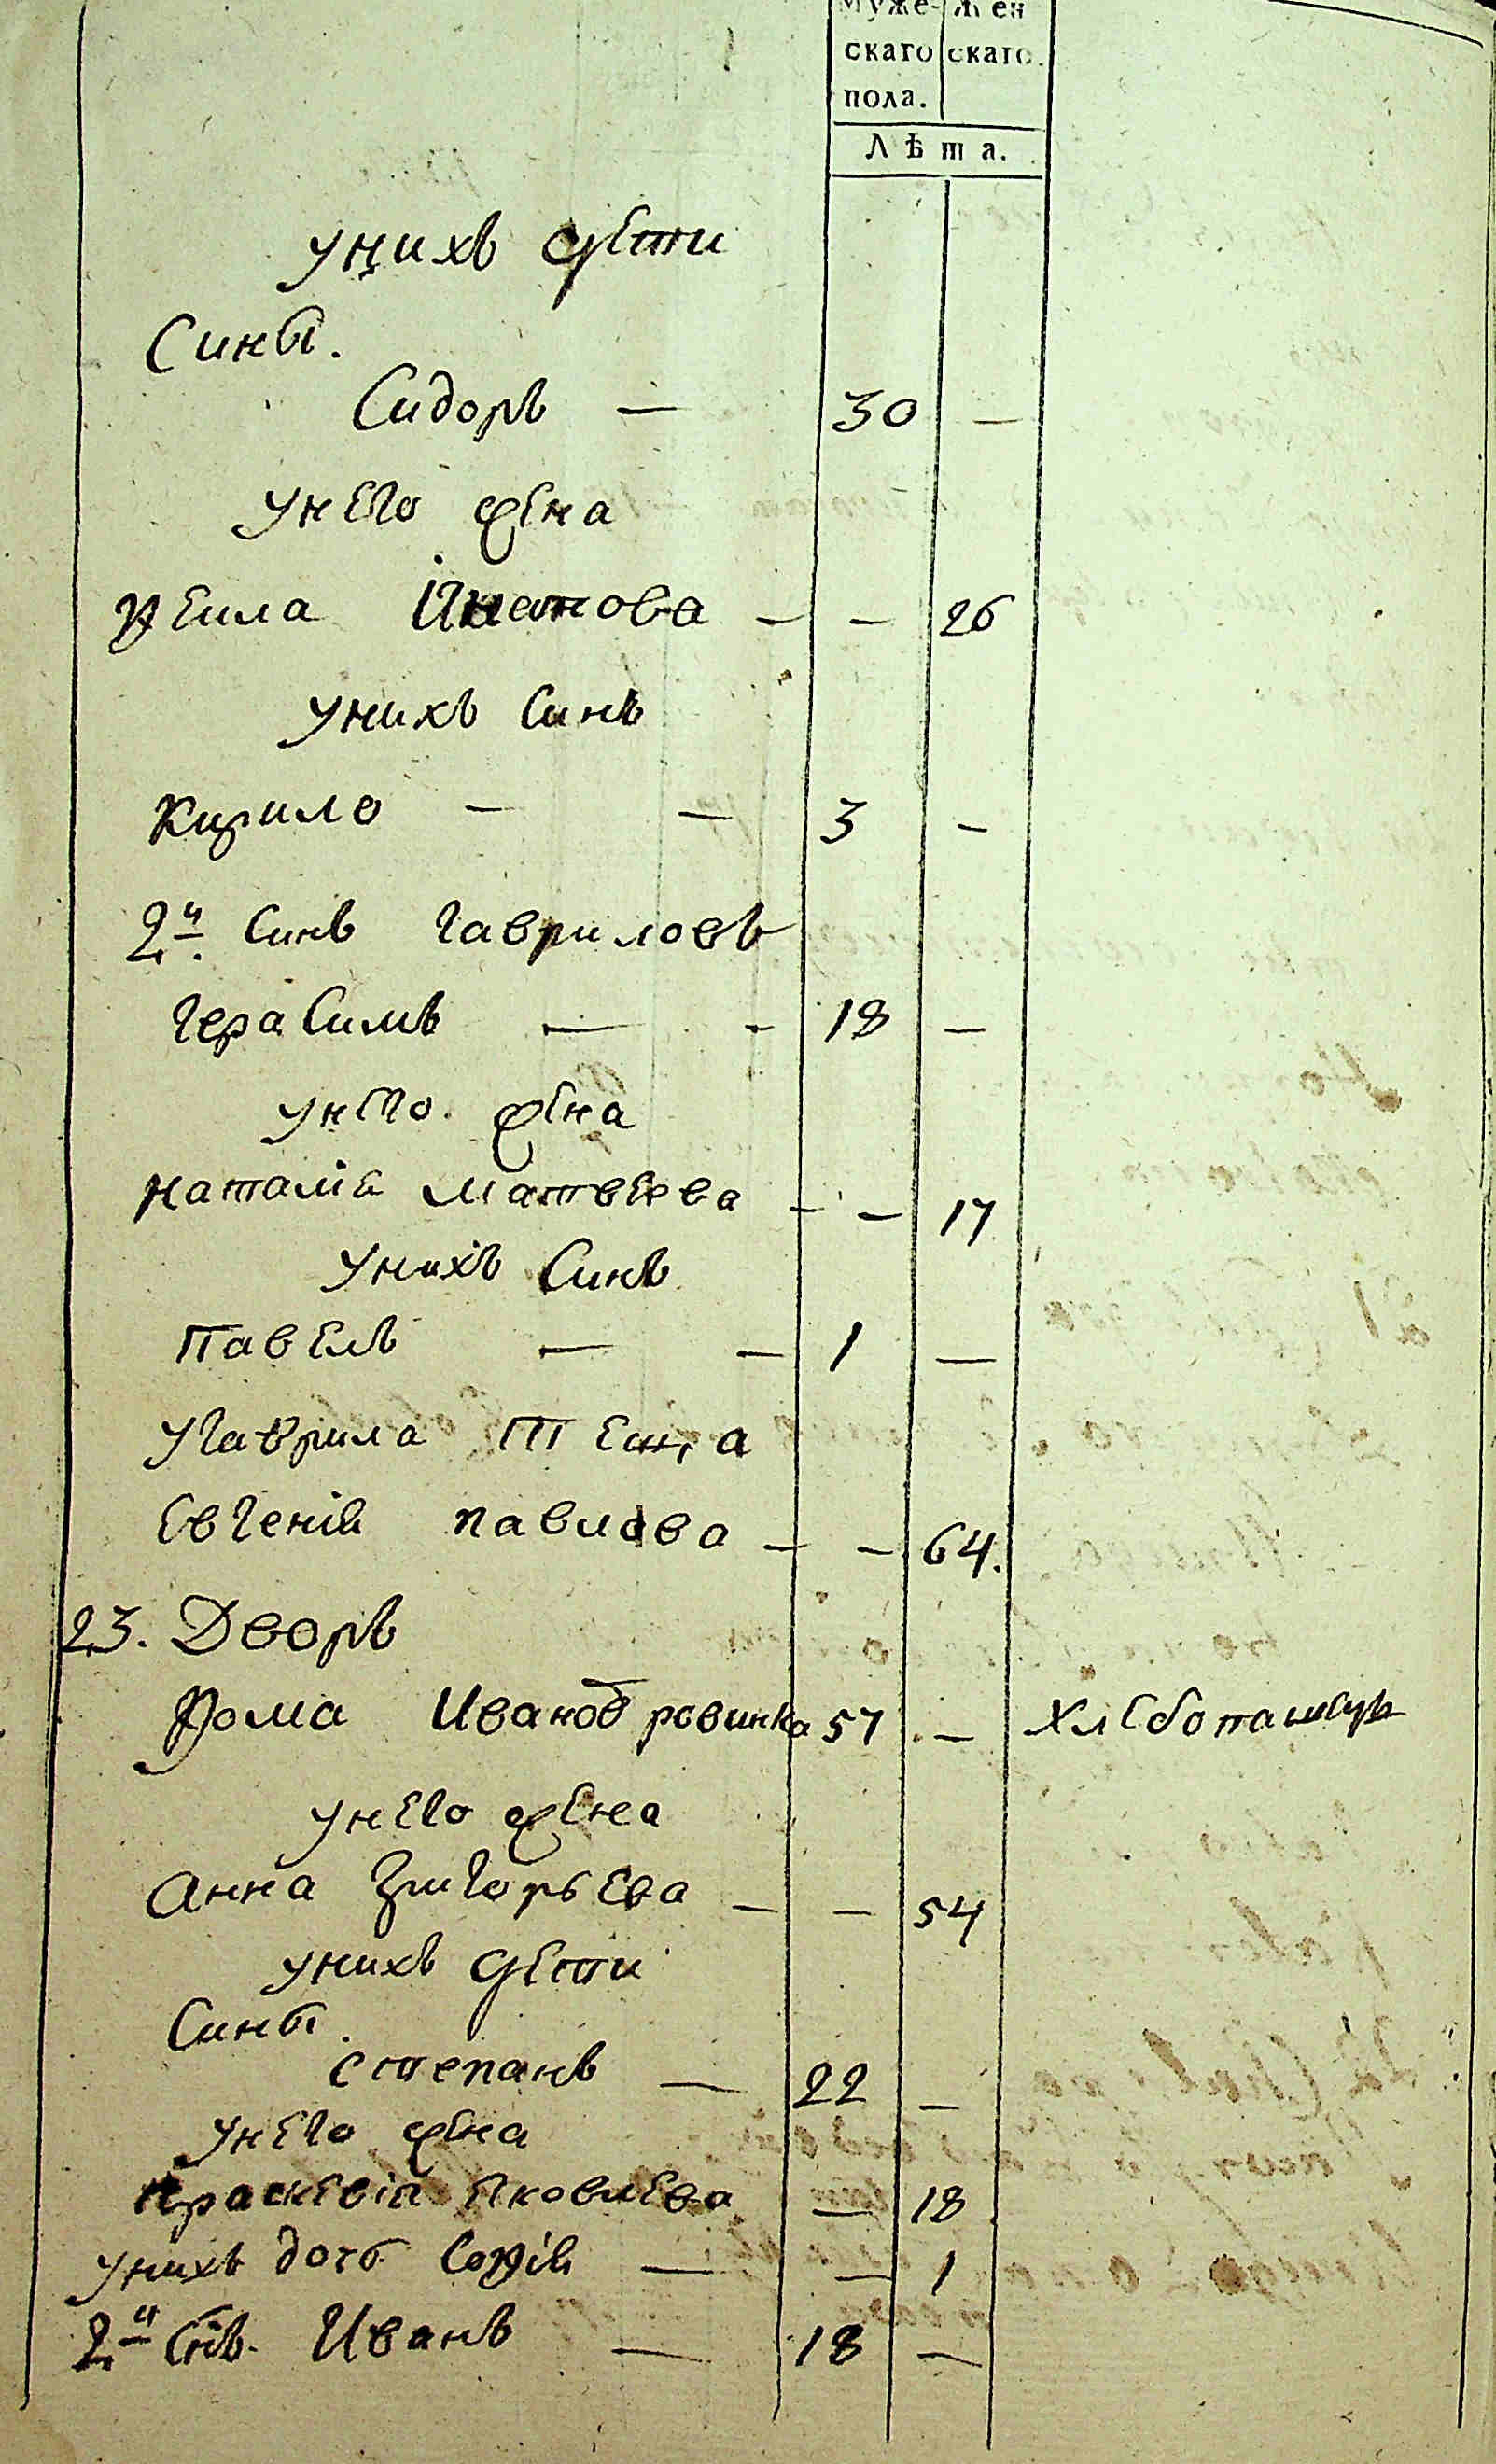 муже- жен
скаго скаго.
пола.
Лѣта.
унихъ дети
Сины.
Сидоръ — 30 —
унего жена
Феила Игнатова — — 26
унихъ Синъ
Кирило — — 3 —
2й. Синъ Гавриловъ
Герасимъ — - 18 —
унего. жена
Наталiя Матвеева — — 17
унихъ Синъ
Павелъ — — 1 —
уГаврила Теща
Евгенiя павлова — — 64.
23. Дворъ
Фома Иванов ровинка 57 — Хлебопашецъ
унего жена
Анна Григорьева — — 54
унихъ дети
Сины.
степанъ — 22 —
унего жена
Праскевiя Яковлева — 18
унихъ дочь Софiя — — 1
2й Снъ. Иванъ — 18 —